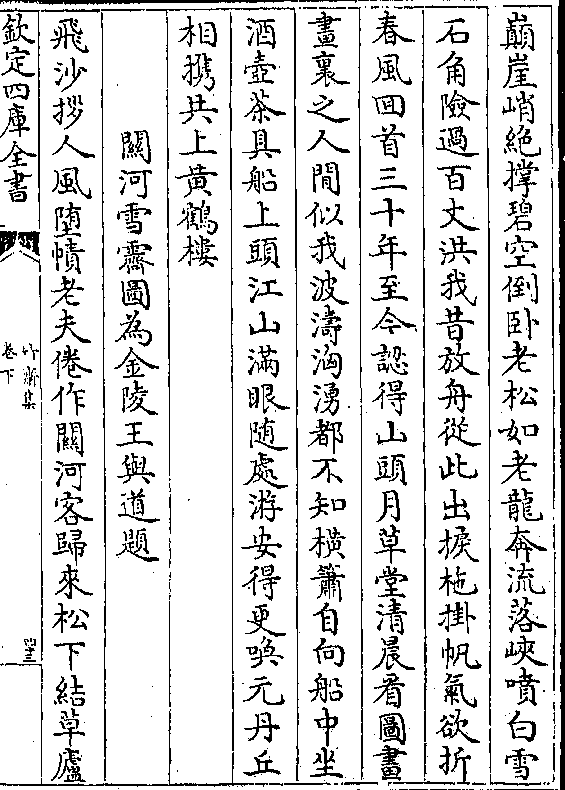 巔崖峭絶撑碧空倒卧老松如老龍奔流落峽噴白雪
石角險過百丈洪我昔放舟從此出捩柂掛帆氣欲折
春風回首三十年至今認得山頭月草堂清晨看圖畫
畫裏之人閒似我波濤洶湧都不知横簫自向船中坐
酒壺茶具船上頭江山滿眼随處游安得更喚元丹丘
相攜共上黄鶴樓
關河雪霽圖為金陵王與道題
飛沙拶人風堕幘老夫倦作關河客歸來松下結草廬
欽定四庫全書
竹齋集
卷下
四十三